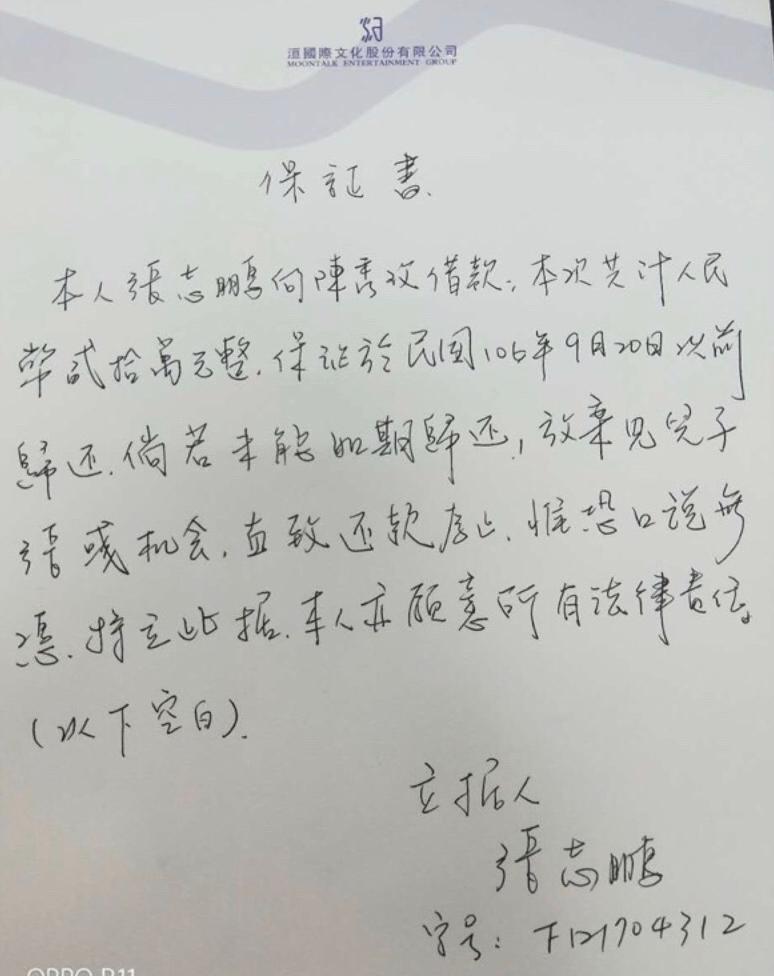 洹國際文化股份有限公司
MOONTALK ENTERTAINMENT GROUP
保証書.
本人張志鵬向陳秀玫借款,本次共計人民
幣貳拾萬元整.保証於民国106年9月20日以前
歸还.倘若未能如期歸还,放棄見兒子
張彧机会,直致还款為止.惟恐口說無
憑.特立此据.本人亦願意所有法律責任。
(以下空白).
立据人
張志鵬
字号:F121704312
OPPO R11